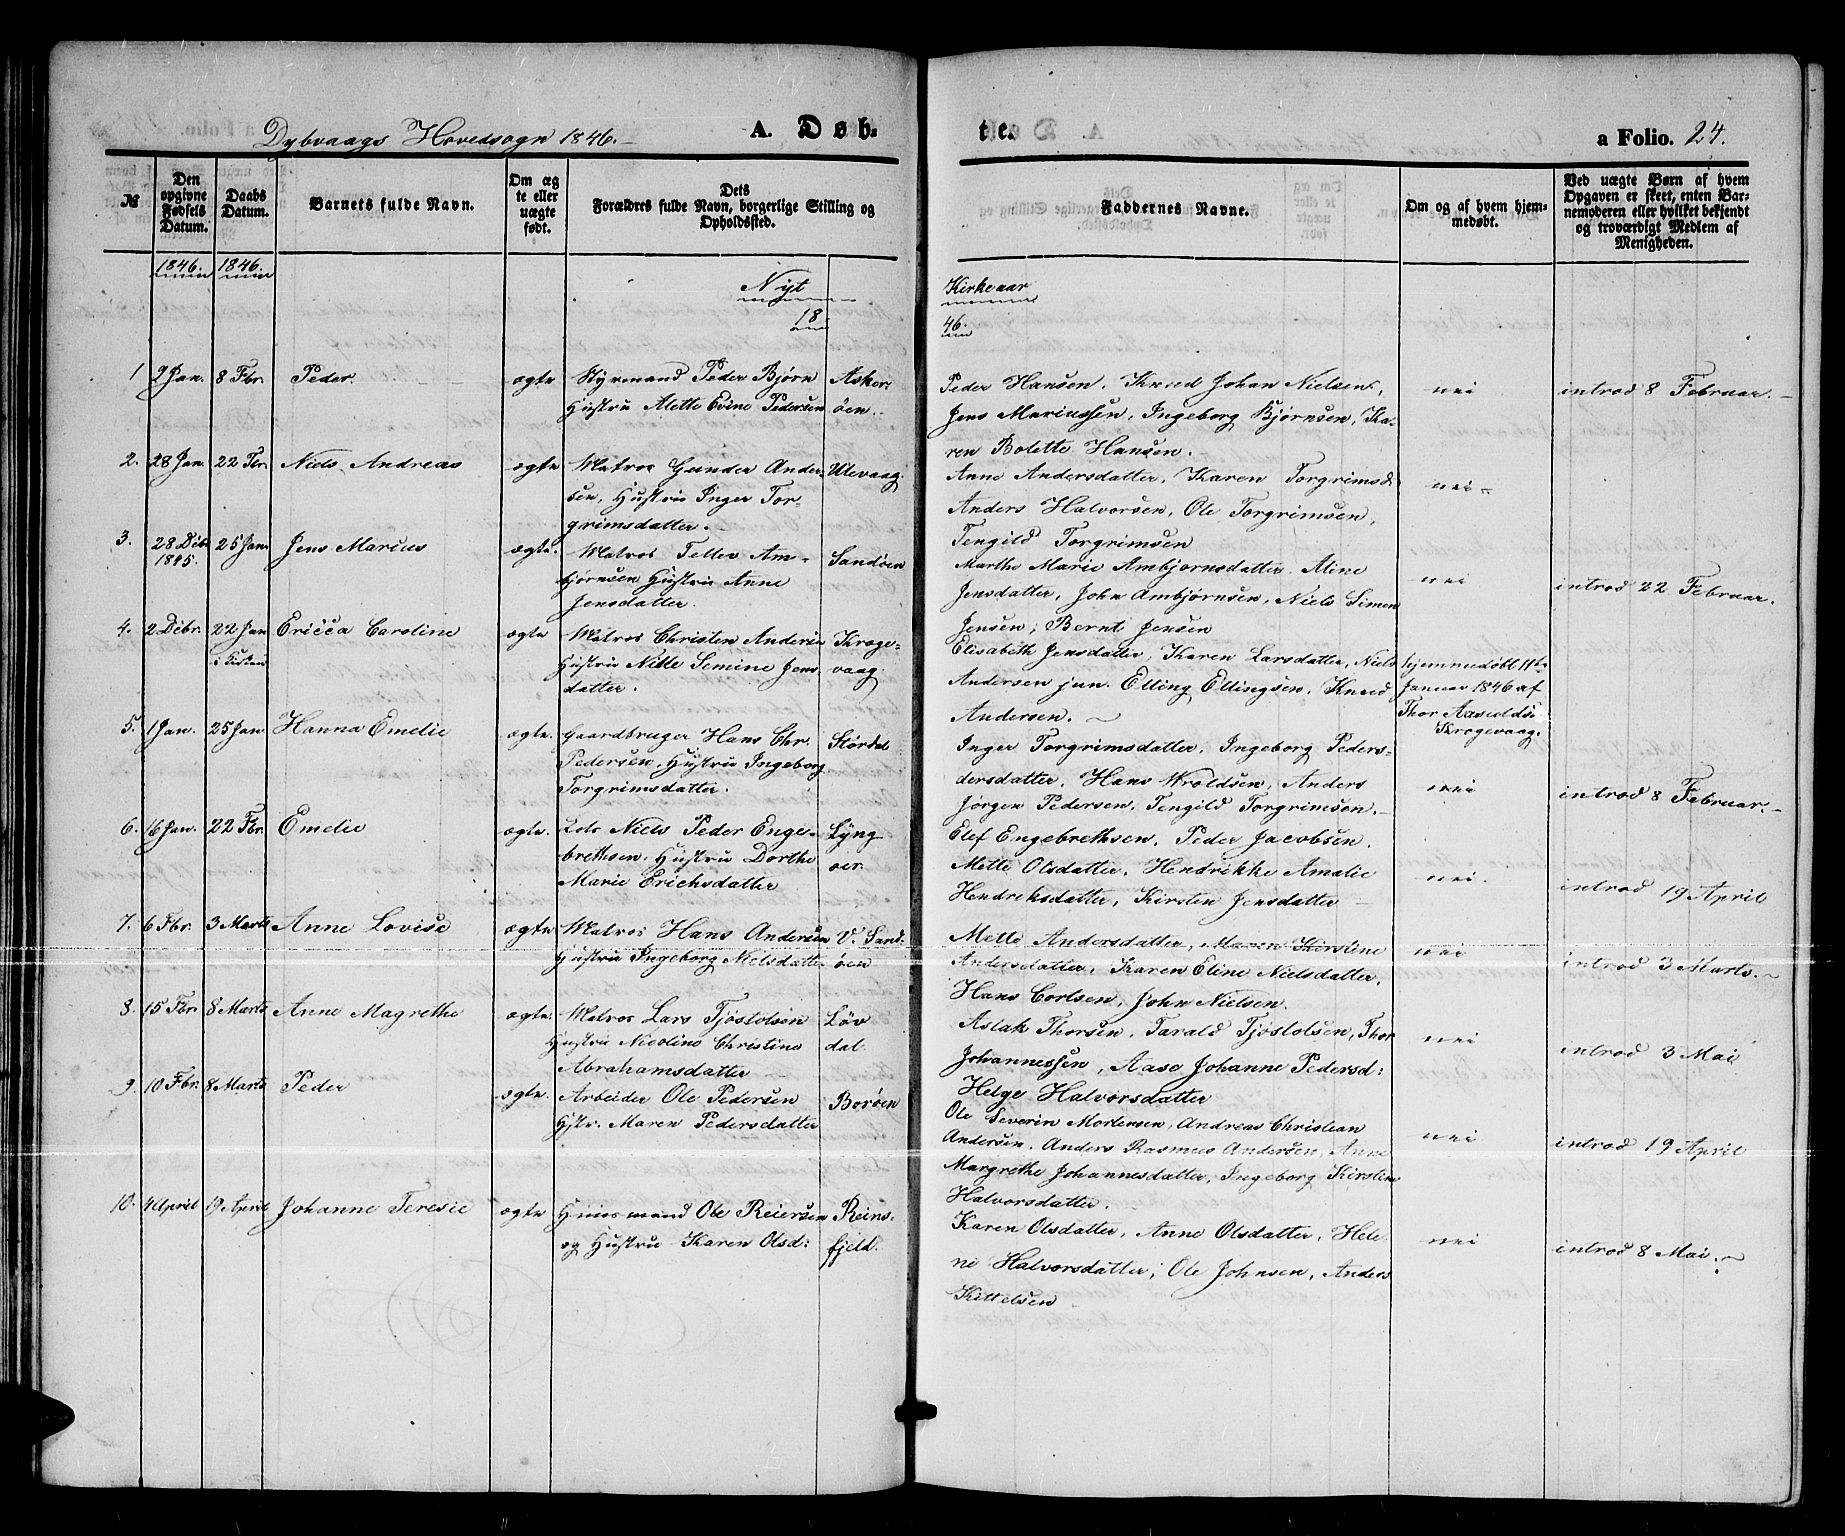 Dybvaags Hovedsogn 1846.
A. Døb-
te.
a Folio. 24.
№
Den opgivne Fødsels Datum.
Daabs Datum.
Barnets fulde Navn.
Om æg te eller uægte født.
Dets Forældres fulde Navn, borgerlige Stilling og Opholdssted.
Faddernes Navne.
Om og af hvem hjem- medøbt.
Ved uægte Børn af hvem Opgaven er skeet, enten Bar- nemoderen eller hvilket bekjendt og troværdigt Medlem af Menigheden.
1846. 1846.
Nyt Kirkeaar
18 46.
1 2 Jan. 8 Fbr. Peder. ægte Styrmand Peder Bjørn Asker-
Hustru Alette Evine Pedersen öen.
Peder Hansen, Knud Johan Nielsen,
Jens Mariussen, Ingeborg Bjørnsen, Ka-
ren Bolette Hansen.
nei
introd 8 Februar.
2. 28 Jan. 22 Fbr. Niels Andreas ægte Matros Gunder Ander- Utevaag.
sen, Hustru Inger Tor-
grimsdatter.
Anne Andersdatter, Karen Torgrimsd.
Anders Halvorsen, Ole Torgrimsen,
Tengild Torgrimsen
nei
3. 28 Dcbr 1845. 25 Jan. Jens Marius ægte. Matros Tellef Am- Sandöen
bjørnsen Hustru Anne
Jensdatter.
Marthe Marie Ambjornsdatter. Aline
Jensdatter, John Ambjørnsen, Niels Simen
Jensen, Bernt Jensen
nei
introd 22 Februar.
4. 2 Dcbr. 22 Jan i Kirken Ericca Caroline ægte Matros Christen Andersen Kroge-
Hustru Nille Semine Jens vaag
datter.
Elisabeth Jensdatter, Karen Larsdatter, Niels
Andersen jun. Elling Ellingsen. Knud
Andersen.
hjemmedøbt 11te
Januar 1846 af
Thor Aasulds.
Krogevaag.
5. 1 Jan. 25 Jan Hanna Emelie ægte. Gaardbruger Hans Chr. Stördal
Pedersen. Hustru Ingeborg
Torgrimsdatter.
Inger Torgrimsdatter, Ingeborg Peders-
dersdatter, Hans Wroldsen, Anders
Jørgen Pedersen, Tengild Torgrimsön.
nei
introd 8 Februar.
6. 16 Jan. 22 Fbr. Emelie ægte. Lods Niels Peder Enge- Lyng-
brethsen. Hustru Dorthe oer.
Marie Erichsdatter
Elef Engebrethsen. Peder Jacobsen.
Mette Olsdatter. Hendrikke Amalie
Hendreksdatter, Kirsten Jensdatter
nei.
introd 19 April
7. 6 Fbr. 3 Marts Anne Lovise ægte Matros Hans Andersen V. Sand-
Hustru Ingeborg Nielsdatter öen
Mette Andersdatter, Maren Kirstene
Andersdatter, Karen Eline Nielsdatter,
Hans Corlsen, John Nielsen.
nei
introd 3 Marts.
8. 15 Fbr. 8 Marts Anne Magrethe ægte. Matros Lars Tjöstolsen Löv
Hustru Nicoline Christine dal.
Abrahamsdatter
Aslak Thorsen, Tarald Tjöstolsen, Thor
Johannessen, Aase Johanne Pedersd:
Helge Halvorsdatter
nei
introd 3 Mai
9. 10 Fbr. 8 Marts Peder ægte. Arbeider Ole Pedersen Boröen
Hstr. Maren Pedersdatter
Ole Severin Mortensen, Andreas Christian
Andersen. Anders Rasmus Andersen, Anne
Margrethe Johannesdatter, Ingeborg Kirstine
Halvorsdatter.
nei
introd 19 April
10. 4 April 19 April Johanne Teresie ægte Huusmand Ole Reiersen Reins-
og Hustru Karen Olsd: fjeld.
Karen Olsdatter, Anne Olsdatter, Hele-
ne Halvorsdatter, Ole Johnsen, Anders
Kittelsen
nei
introd 8 Mai.